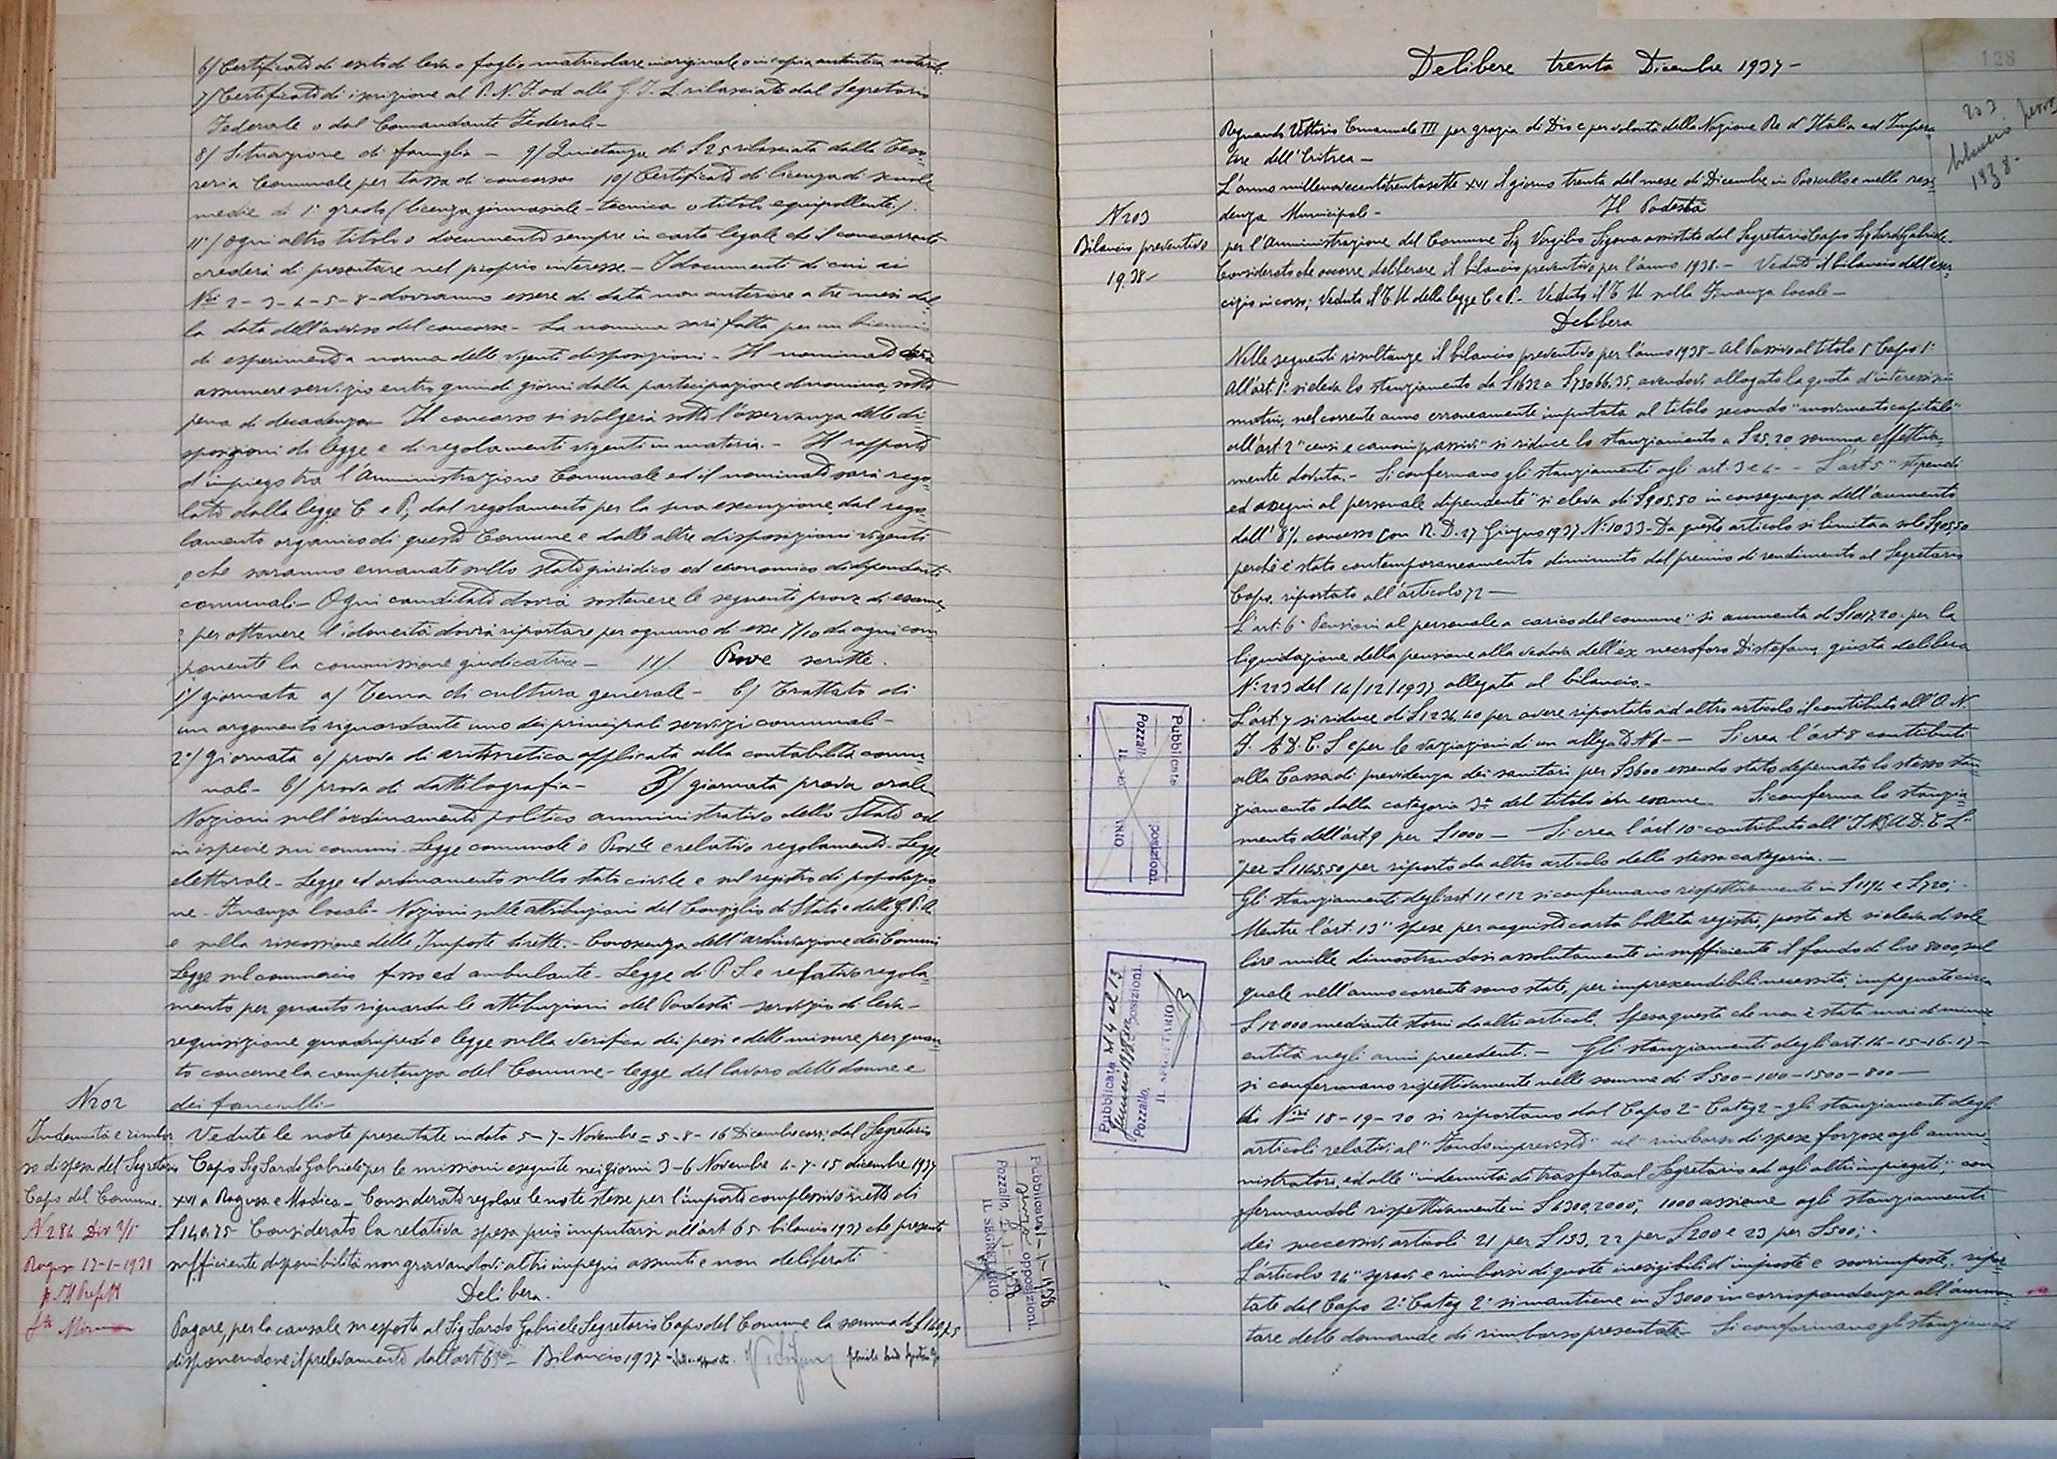 6/ Certificato di esito di leva o foglio matricolare in originale o in copia autentica notarile.
7/ Certificato di iscrizione al P.N.F. od alla G.I.L. rilasciato dal Segretario
Federale o dal Comandante Federale -
8/ Situazione di famiglia - 9/ Quietanza di £ 25 rilasciata dalla Teso-
reria Comunale per tassa di concorso 10/ Certificato di licenza di scuole
medie di 1° grado (licenza ginnasiale - tecnica o titoli equipollente).
11°/ Ogni altro titolo o documento sempre in carta legale che il concorrente
crederà di presentare nel proprio interesse. - I documenti di cui ai
N.ri 2 - 3 - 4 - 5 - 8 - dovranno essere di data non anteriore a tre mesi dal-
la data dell'avviso del concorso - La nomina sarà fatta per un biennio
di esperimento a norma delle vigenti disposizioni - Il nominato dovrà
assumere servizio entro quindici giorni dalla partecipazione di nomina, sotto
pena di decadenza - Il concorso si svolgerà sotto l'osservanza delle di-
sposizioni di legge e di regolamenti vigenti in materia. - Il rapporto
d'impiego tra l'Amministrazione Comunale ed il nominato sarà rego-
lato dalla legge C. e P., dal regolamento per la sua esecuzione, dal rego-
lamento organico di questo Comune e dalle altre disposizioni vigenti
e che saranno emanate sullo stato giuridico ed economico di dipendenti
comunali - Ogni candidato dovrà sostenere le seguenti prove di esame,
e per ottenere l'idoneità dovrà riportare per ognuno di esse 7/10 da ogni com
ponente la commissione giudicatrice - 11/. Prove scritte.
1°/ giornata a/ Tema di cultura generale - b/ Trattato di
un argomento riguardante uno dei principali servizi comunali -
2°/ Giornata a/ prova di aritmetica applicata alla contabilità comu-
nale - b/ prova di dattilografia - 3/ giornata prova orale
Nozioni sull'ordinamento politico amministrativo dello Stato ed
in ispecie sui comuni - Legge comunale e Prov.le e relativo regolamento - Legge
elettorale - Legge ed ordinamento sullo stato civile e sul registro di popolazio-
ne - Finanza locale - Nozioni sulle attribuzioni del Consiglio di Stato e della G.P.A.
e sulla riscossione delle Imposte dirette. - Conoscenza dell'archiviazione dei Comuni
Legge sul commercio fisso ed ambulante - Legge di P.S. e relativo regola-
mento per quanto riguarda le attribuzioni del Podestà - servizio di leva -
requisizione quadrupedi e legge sulla verifica dei pesi e delle misure, per quan-
to concerne la competenza del Comune - legge del lavoro delle donne e
dei fanciulli -
N 202
Indennità e rimbor
so di spesa del Segretario
Capo del Comune.
N 284 Div 2/1
Ragusa 17-1-1938
p. Il Prefetto
Vedute le note presentate in data 5 - 7 - Novembre = 5 - 8 - 16 Dicembre corr. dal Segretario
Capo Sig Sardo Gabriele per le missioni eseguite nei giorni 3 - 6 Novembre 4 - 7 - 15 dicembre 1937
XVI a Ragusa e Modica - Considerato regolare le note stesse per l'importo complessivo netto di
£ 149.75 Considerato la relativa spesa può imputarsi all'art 65 bilancio 1937 che presenta
sufficiente disponibilità non gravandovi altri impegni assunti e non deliberati
Delibera.
Pagare, per la causale su esposta al Sig Sardo Gabriele Segretario Capo del Comune la somma di £ 149,75
disponendone il prelevamento dall'art 65 - Bilancio 1937 -
Pubblicata 1-1-1938
opposizioni.
Pozzallo, 1-1-1938
IL SEGRETARIO.
Delibere trenta Dicembre 1937 -
203
bilancio prev
1938 -
Regnando Vittorio Emanuele III per grazia di Dio e per volontà della Nazione Re d'Italia ed Impera
tore dell'Etiopia -
L'anno millenovecentotrentasette XVI il giorno trenta del mese di Dicembre in Pozzallo e nella resi-
denza Municipale - Il Podestà
N 203
Bilancio preventivo
1938 -
per l'Amministrazione del Comune Sig. Vergilio Sigona assistito dal Segretario Capo Sig Sardo Gabriele -
Considerato che occorre deliberare il bilancio preventivo per l'anno 1938. - Veduto il bilancio dell'eser-
cizio in corso; Veduto il T.U della legge C e P - Veduto il T U sulla Finanza locale -
Delibera
Nelle seguenti risultanze il bilancio preventivo per l'anno 1938 - Al Passivo al titolo I° Capo 1°
All'art. 1° si eleva lo stanziamento da £ 1632 a £ 73066,35, avendovi allogato la quota d'interessi sui
mutui, nel corrente anno erroneamente imputata al titolo secondo "movimento capitali"
all'art 2 "censi e canoni passivi" si riduce lo stanziamento a £ 25,20 somma effettiva-
mente dovuta. - Si confermano gli stanziamenti agli art. 3 e 4 - L'art 5 "stipendi
ed assegni al personale dipendente" si eleva di £ 905,50 in conseguenza dell'aumento
dell'8% concesso con R.D. 27 Giugno 1937 N. 1033 - Da questo articolo si limita a sole £ 905,50
perché è stato contemporaneamente diminuito dal premio di rendimento al Segretario
Capo, riportato all'articolo 72 -
L'art. 6 "Pensioni al personale a carico del comune" si aumenta di £ 1017.20 per la
liquidazione della pensione alla vedova dell'ex necroforo Distefano, giusta delibera
N. 223 del 14/12/1937 allegata al bilancio. -
L'art. 7 si riduce di £ 1234.40 per avere riportato ad altro articolo il contributo all'O.N.
si crea l'art 8 contributi
alla Cassa di previdenza dei sanitari per £ 3600 essendo stato depennato lo stesso stan-
ziamento dalla categoria 3a del titolo in esame - Si conferma lo stanzia-
mento dell'art. 9 per £ 1000 - Si crea l'art. 10 contributo all'I.N.A.D.E.L.
per £ 1145.50 per riporto da altro articolo della stessa categoria. -
Gli stanziamenti degli art 11 e 12 si confermano rispettivamente in £ 1194 e £ 720; -
Mentre l'art. 13 "Spese per acquisto carta bollata registri, posta etc si eleva di sole
lire mille dimostrandosi assolutamente insufficiente il fondo di lire 8000, sul
quale nell'anno corrente sono state, per imprescindibili necessità, impegnate circa
£ 12000 mediante storni da altri articoli. Spesa questa che non è stata mai di minore
entità negli anni precedenti. - Gli stanziamenti degli art. 14 - 15 - 16 - 17 -
si confermano rispettivamente nelle somme di £ 500 - 100 - 1500 - 800 -
Ai N.ri 18 - 19 - 20 si riportano dal Capo 2° Categ 2 - gli stanziamenti degli
articoli relativi al "Fondo imprevisti" al "rimborso di spese forzose agli ammi-
nistratori, ed alle "indennità di trasferta al Segretario ed agli altri impiegati," con
fermandoli rispettivamente in £ 6300, 2000; 1000 assieme agli stanziamenti
dei successivi articoli 21 per £ 153, 22 per £ 200 e 23 per £ 500; -
L'articolo 24 "sgravi e rimborsi di quote inesigibili d'imposte e sovrimposte, ripor-
tate dal Capo 2° Categ 2° si mantiene in £ 3000 in corrispondenza all'ammon-
tare delle domande di rimborso presentate - Si confermano gli stanziamenti
Pubblicata
posizioni.
Pozzallo,
IL
Pubblicata il 4 al 13
Gennaio 1938
posizioni.
Pozzallo,
IL SEGRETARIO